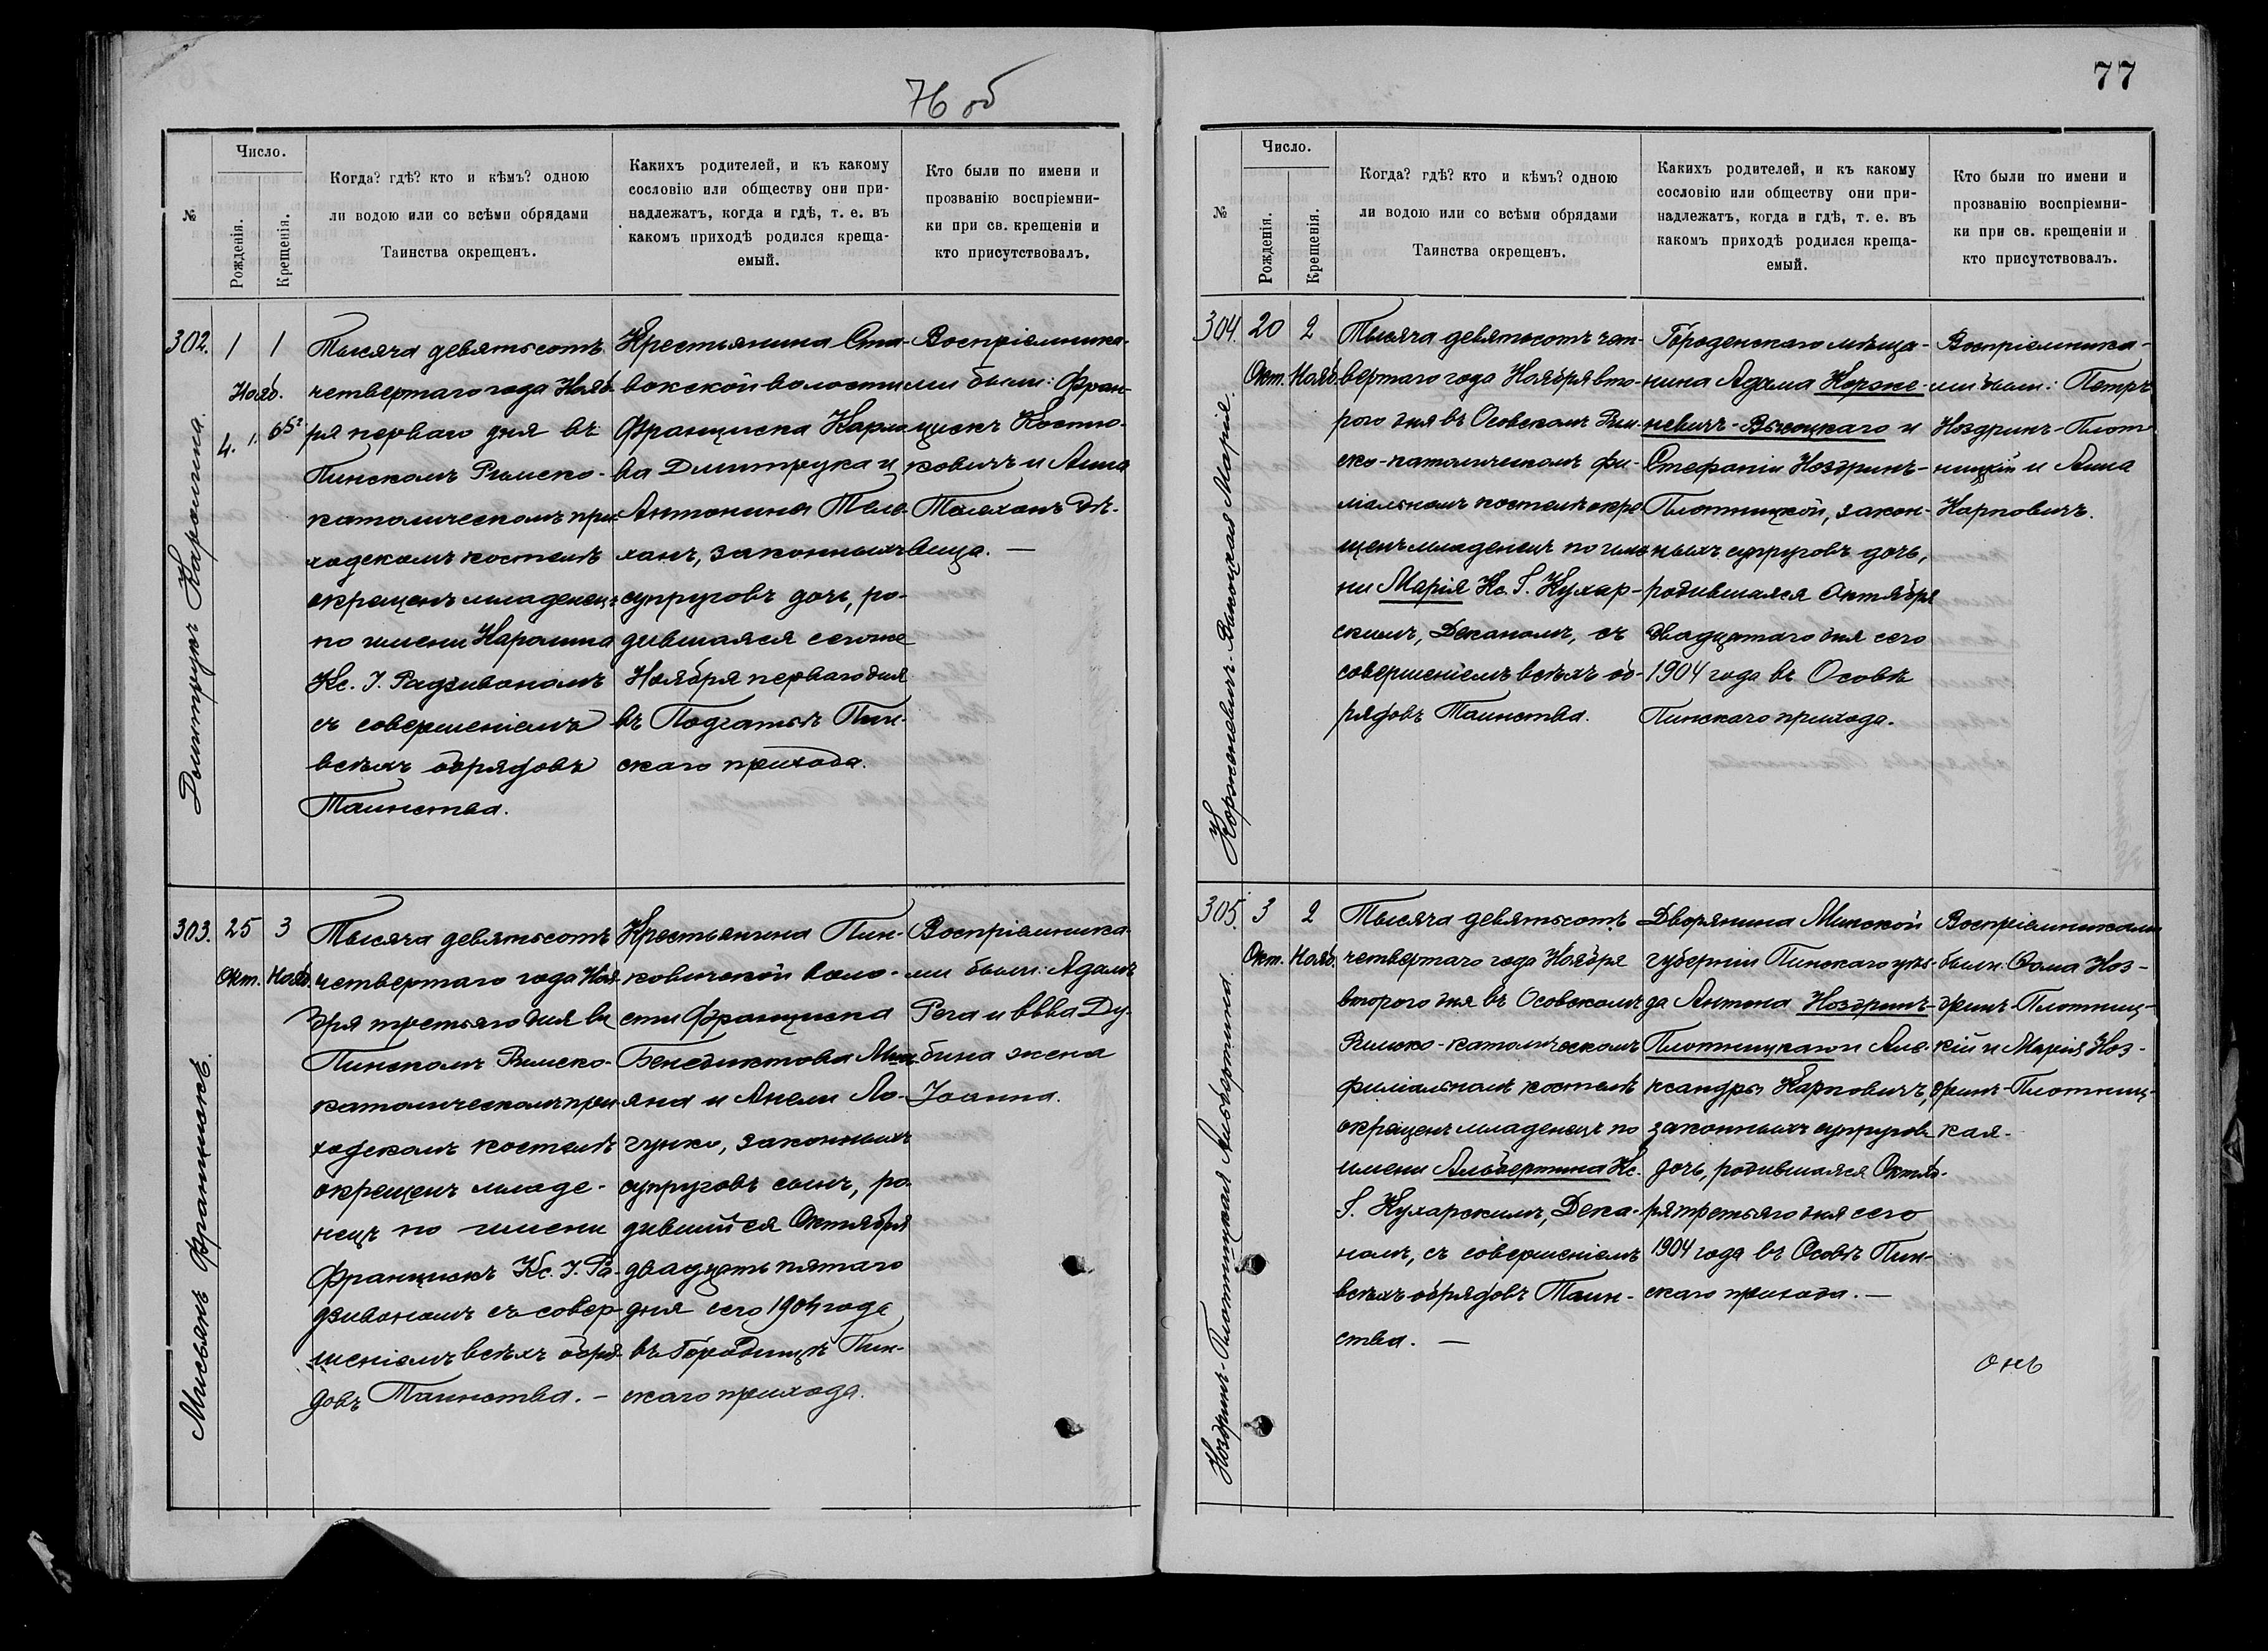 76 об
№
Число.
Рожденія.
Крещенія.
Когда? гдѣ? кто и кѣмъ? одною
ли водою или со всѣми обрядами
Таинства окрещенъ.
Какихъ родителей, и къ какому
сословію или обществу они при-
надлежатъ, когда и гдѣ, т. е. въ
какомъ приходѣ родился креща-
емый.
Кто были по имени и
прозванію воспріемни-
ки при св. крещеніи и
кто присутствовалъ.
302.
1
1
Нояб.
Дмитрукъ Каролина.
Тысяча девятьсотъ
четвертаго года Нояб-
ря перваго дня въ
Пинскомъ Римско-
католическомъ при-
ходскомъ костелѣ
окрещенъ младенецъ
по имени Каролина
Кс. І. Радзивономъ
съ совершеніемъ
всѣхъ обрядовъ
Таинства.
Крестьянина Ста-
вокской волости
Франциска Карло-
ва Дмитрука и
Антонина Теле-
ханъ, законныхъ
супруговъ дочь, ро-
дившаяся сегоже
Ноября перваго дня
въ Подгатьѣ Пин-
скаго прихода.
Воспріемника-
ми были: Фран-
цискъ Костю-
ковичъ и Анна
Телеханъ дѣ-
вица. —
303.
25
Окт.
3
Нояб.
Мисьянъ Францискъ.
Тысяча девятьсотъ
четвертаго года Ноя-
бря третьяго дня въ
Пинскомъ Римско-
католическомъ при-
ходскомъ костелѣ
окрещенъ младе-
нецъ по имени
Францискъ Кс. І. Ра-
дзивономъ съ совер-
шеніемъ всѣхъ обря-
довъ Таинства. —
Крестьянина Пин-
ковичской воло-
сти Франциска
Бенедиктова Мись-
яна и Анели Ло-
гунко, законныхъ
супруговъ сынъ, ро-
дившійся Октября
двадцать пятаго
дня сего 1904 года
въ Городищѣ Пин-
скаго прихода.
Воспріемника-
ми были: Адамъ
Рега и Ева Ду-
бина жена
Іоанна.
77
№
Число.
Рожденія.
Крещенія.
Когда? гдѣ? кто и кѣмъ? одною
ли водою или со всѣми обрядами
Таинства окрещенъ.
Какихъ родителей, и къ какому
сословію или обществу они при-
надлежатъ, когда и гдѣ, т. е. въ
какомъ приходѣ родился креща-
емый.
Кто были по имени и
прозванію воспріемни-
ки при св. крещеніи и
кто присутствовалъ.
304.
20
Окт.
2
Нояб.
Высоцкая Марія.
Тысяча девятьсотъ чет-
вертаго года Ноября вто-
рого дня въ Осовскомъ Рим-
ско-католическомъ фи-
ліальномъ костелѣ окре-
щенъ младенецъ по име-
ни Марія Кс. І. Кухар-
скимъ, Деканомъ, съ
совершеніемъ всѣхъ об-
рядовъ Таинства.
Городенскаго мѣща-
нина Адама
Высоцкаго и
Стефаніи Ноздринъ-
Плотницкой, закон-
ныхъ супруговъ дочь,
родившаяся Октября
двадцатаго дня сего
1904 года въ Осовѣ
Пинскаго прихода.
Воспріемника-
ми были: Петръ
Ноздринъ-Плот-
ницкій и Анна
Карповичъ.
305.
3
Окт.
2
Нояб.
Ноздринъ-Плотницкая Альбертина.
Тысяча девятьсотъ
четвертаго года Ноября
второго дня въ Осовскомъ
Римско-католическомъ
филіальномъ костелѣ
окрещенъ младенецъ по
имени Альбертина Кс.
І. Кухарскимъ, Дека-
номъ, съ совершеніемъ
всѣхъ обрядовъ Таин-
ства. —
Дворянина Минской
губерніи Пинскаго уѣз-
да Антона Ноздринъ-
Плотницкаго и Але-
ксандры Карповичъ,
законныхъ супруговъ
дочь, родившаяся Октяб-
ря третьяго дня сего
1904 года въ Осовѣ Пин-
скаго прихода. —
Воспріемниками
были: Ѳома Ноз-
дринъ-Плотниц-
кій и Марія Ноз-
дринъ-Плотниц-
кая.